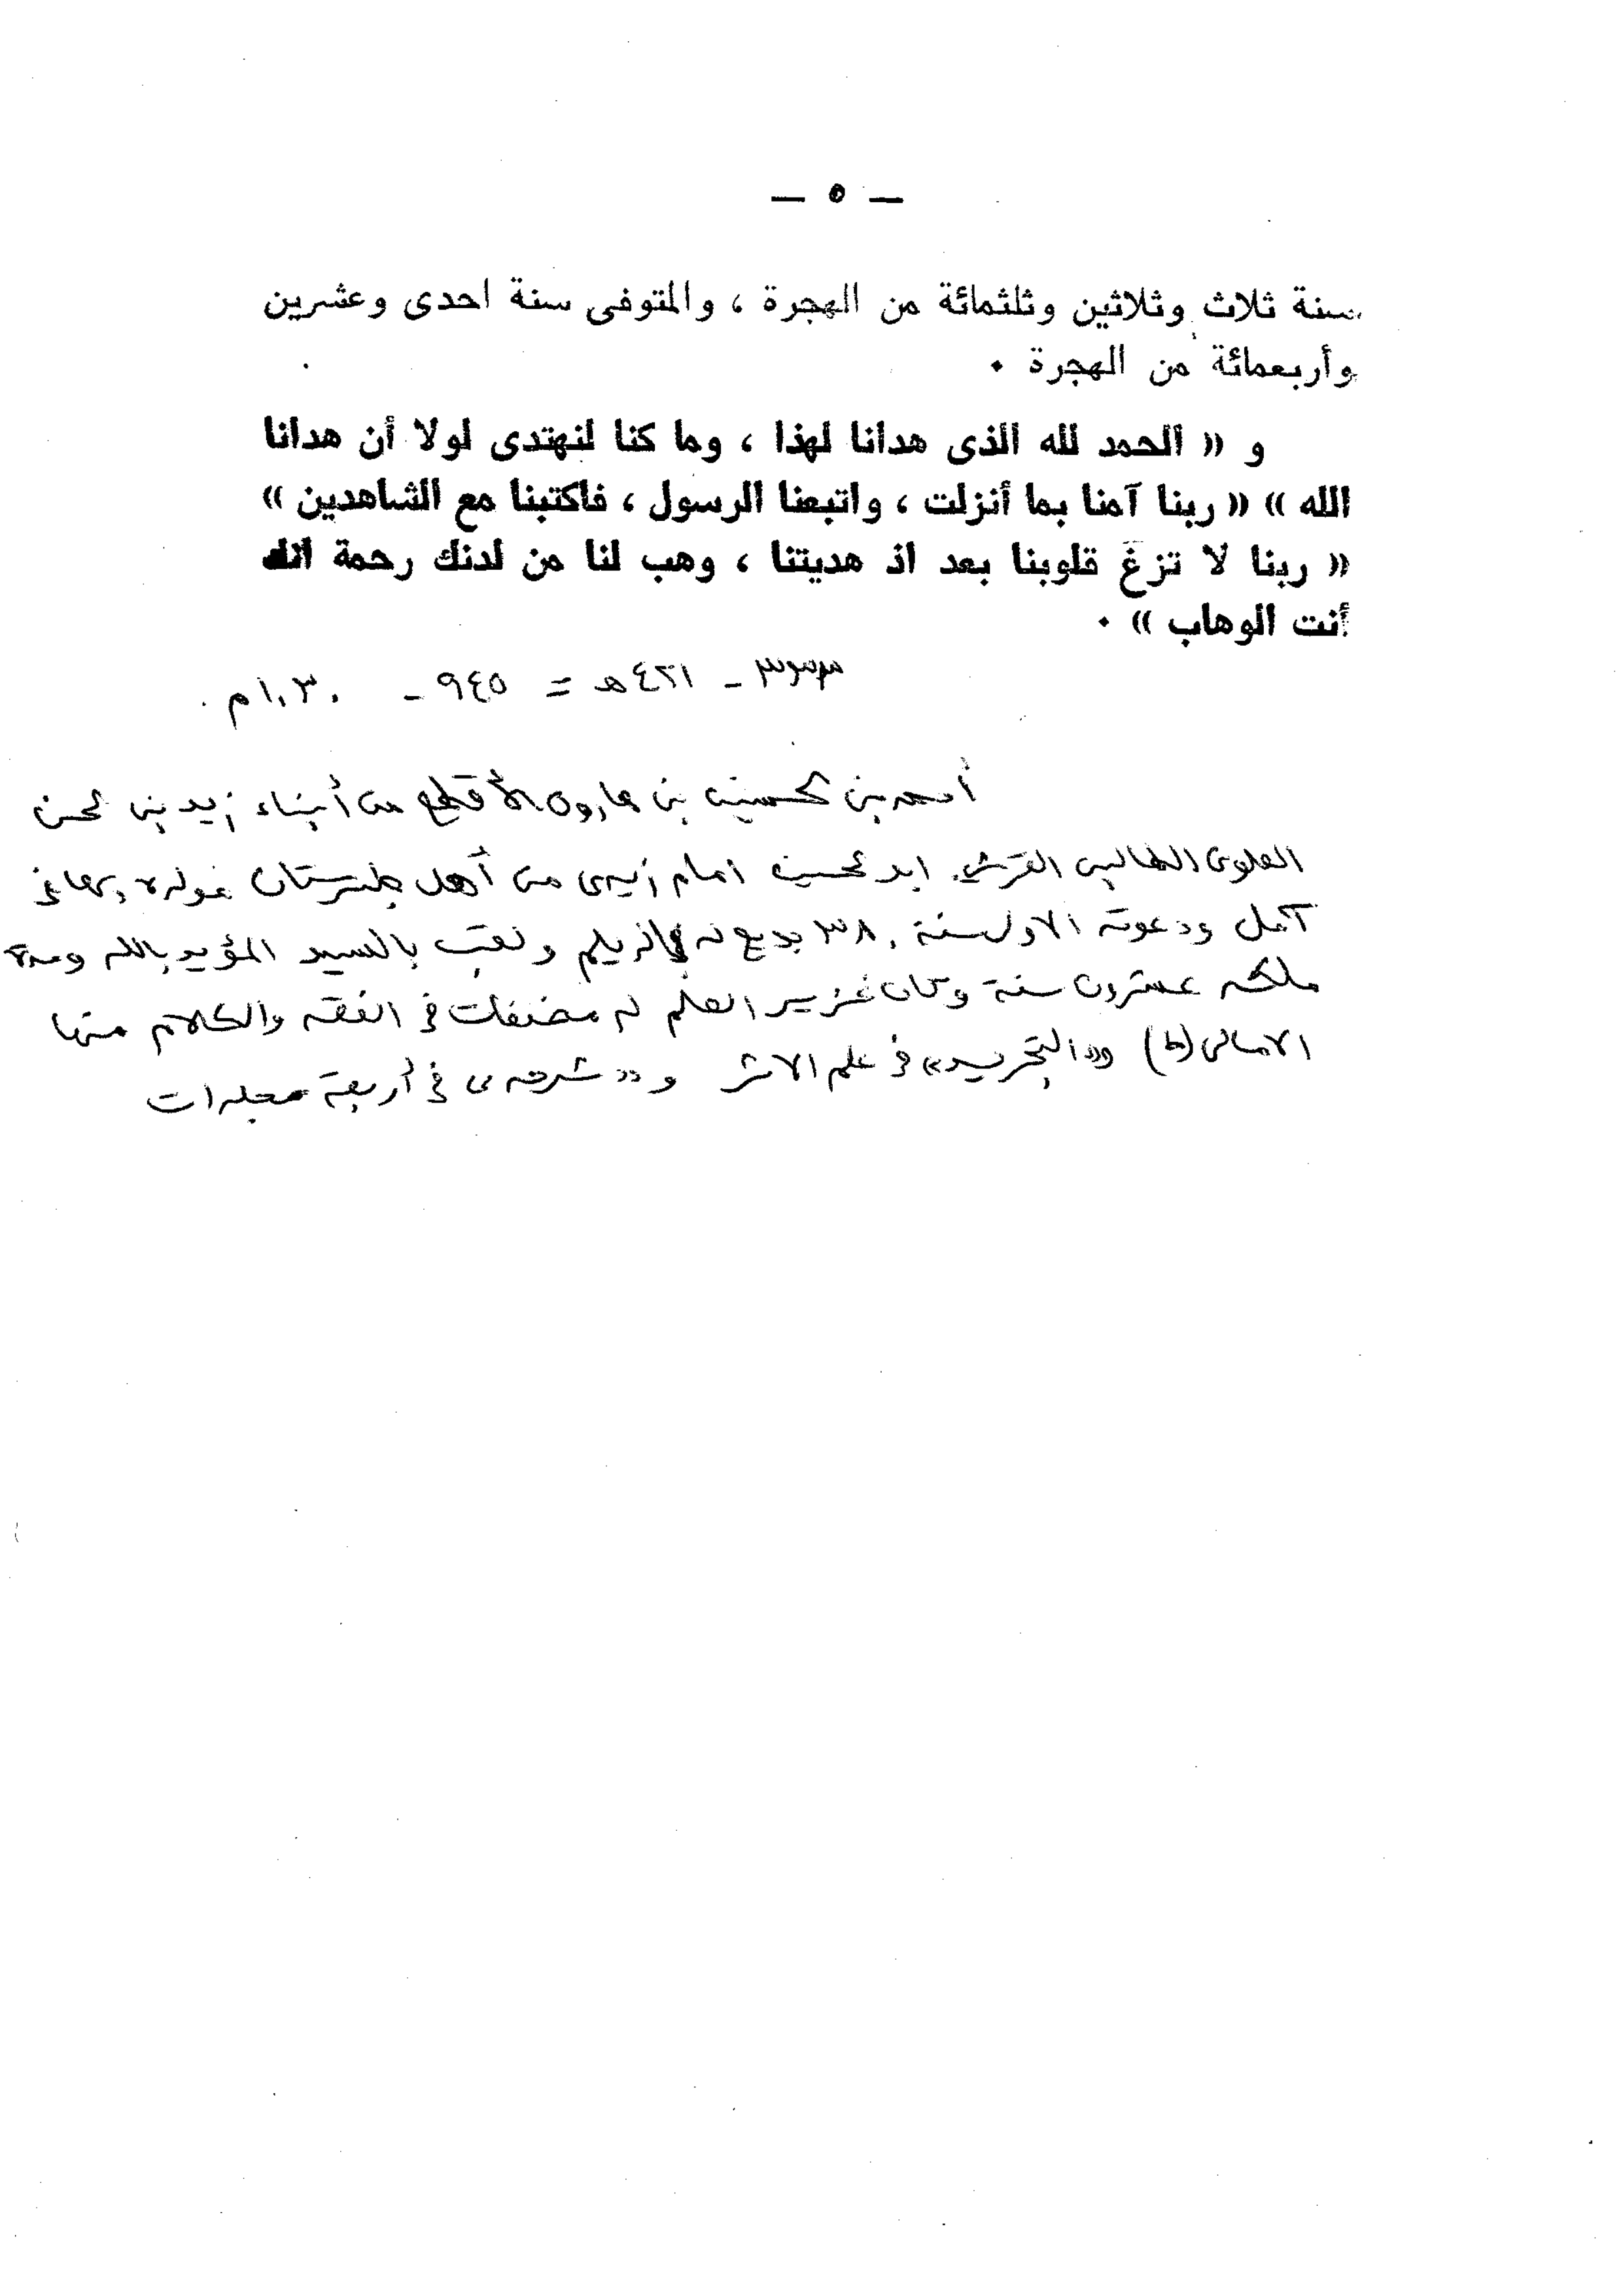 — ٥ —
سنة ثلاث وثلاثين وثلثمائة من الهجرة ، والمتوفى سنة احدى وعشرين
وأربعمائة من الهجرة .
و « الحمد لله الذى هدانا لهذا ، وما كنا لنهتدى لولا أن هدانا
الله » « ربنا آمنا بما أنزلت ، واتبعنا الرسول ، فاكتبنا مع الشاهدين »
« ربنا لا تزغ قلوبنا بعد اذ هديتنا ، وهب لنا من لدنك رحمة انك
أنت الوهاب » .
٣٣٣ - ٤٢١ هـ = ٩٤٥ - ١٠٣٠ م .
أحمد بن الحسين بن هارون الأقطع من أبناء زيد بن الحسن
العلوى الطالبى القرشى ابو الحسين امام زيدى من أهل طبرستان مولده بها فى
آمل ودعوته الاولى سنة ٣٨٠ بويع له بالديلم ولقب بالسيد المؤيد بالله ومدة
ملكه عشرون سنة وكان غزير العلم له مصنفات فى الفقه والكلام منها
الامالى (ط) و« التجريد » فى علم الاثر و « شرحه » فى أربعة مجلدات